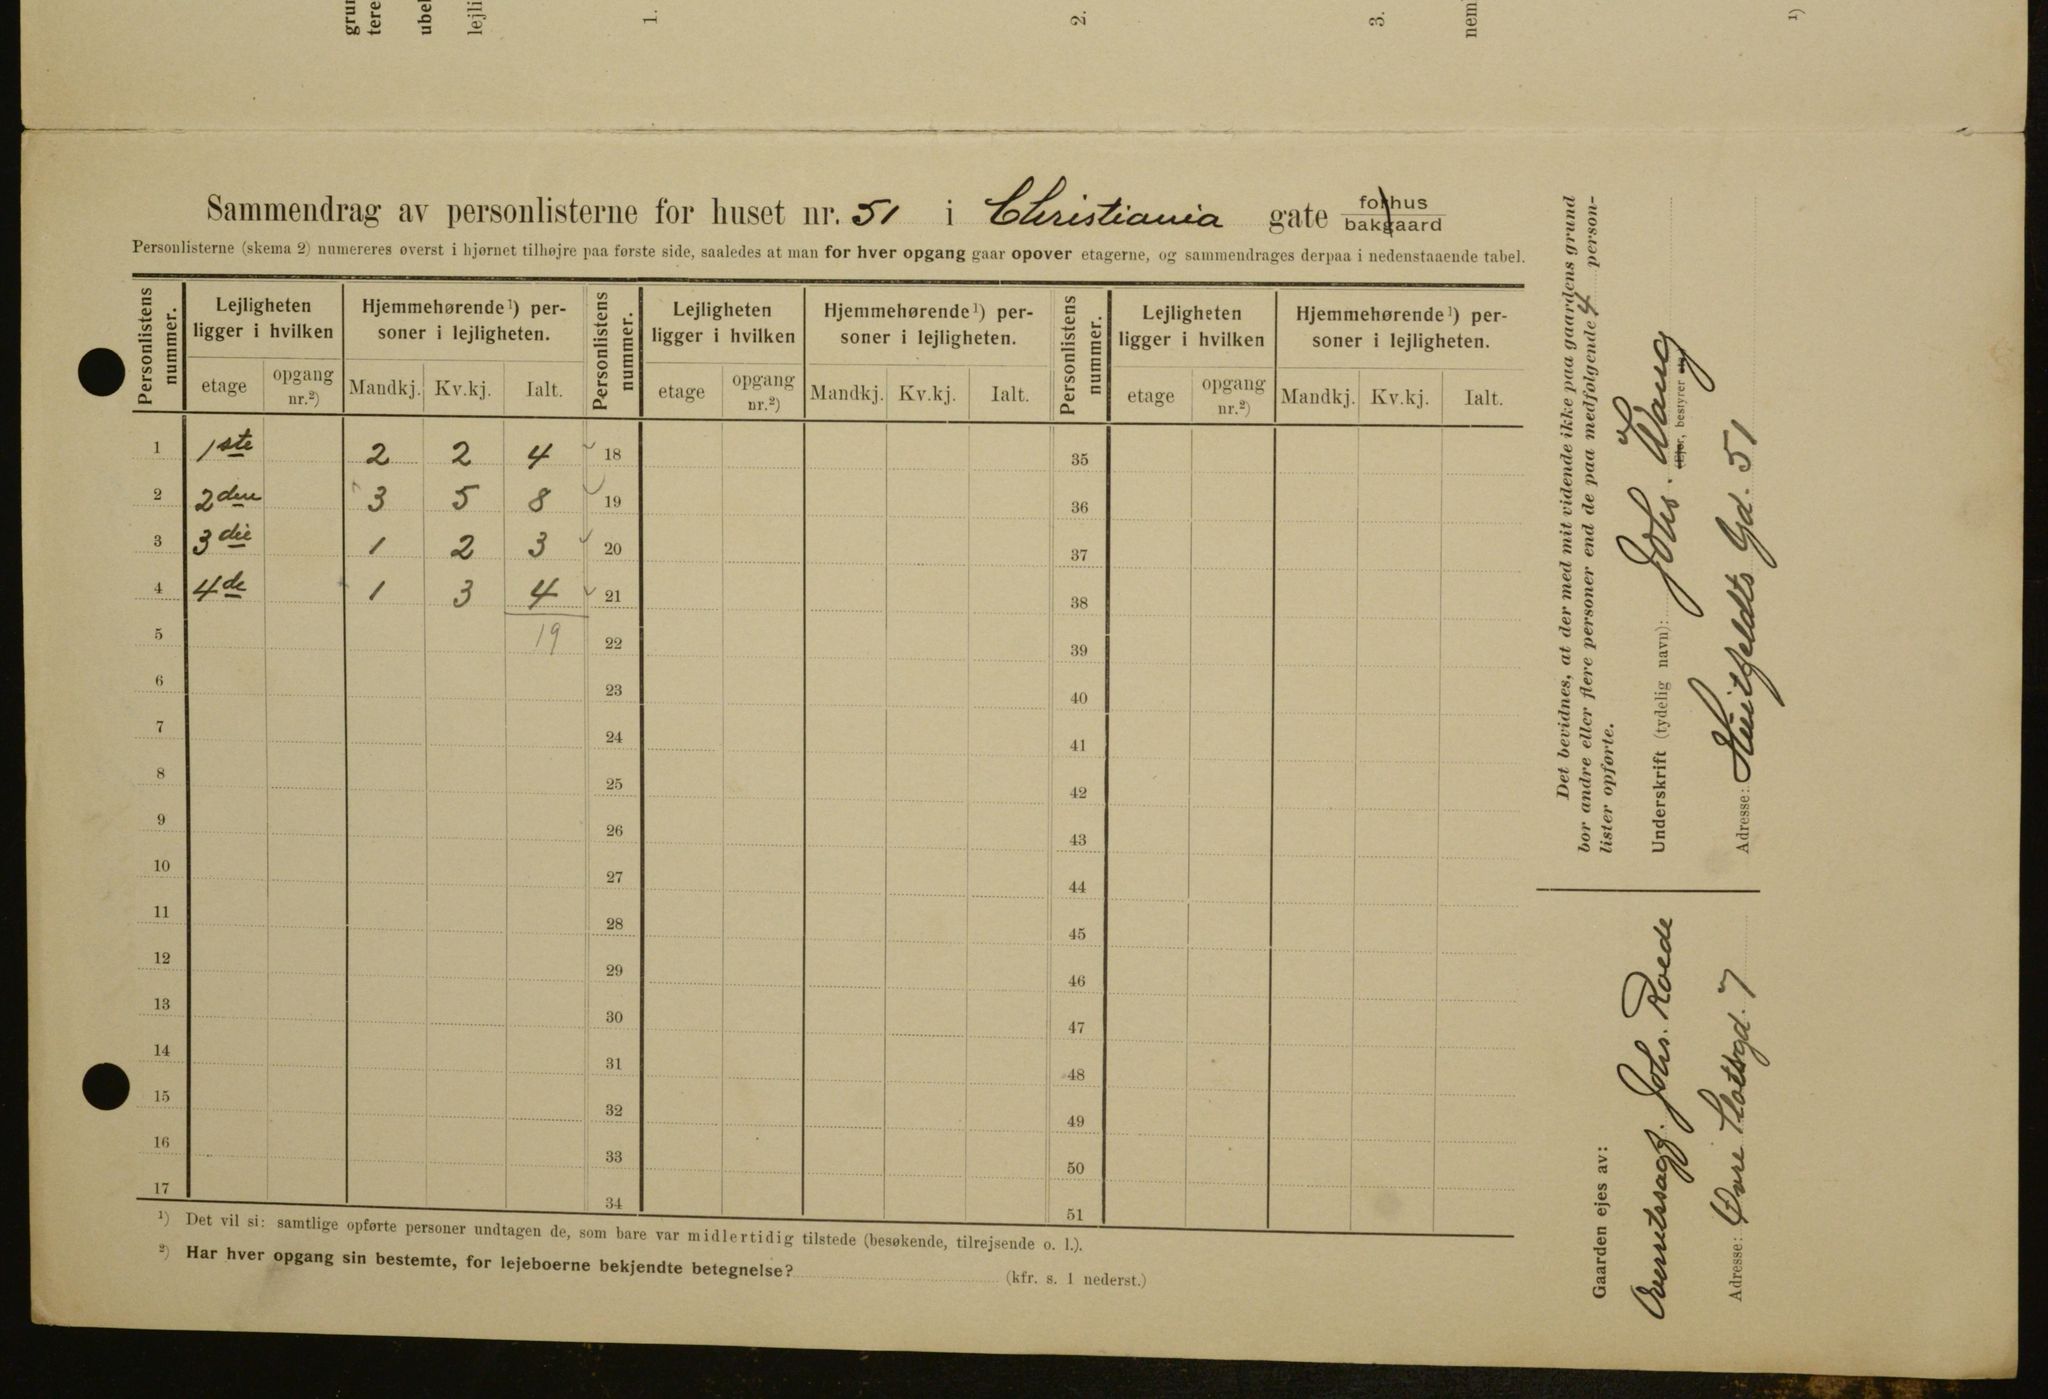 grun
tere
ubel
lejli
1.
2.
3.
nem
1)
Sammendrag av personlisterne for huset nr. 51 i Christiania gate forhus
bakgaard
Personlisterne (skema 2) numereres øverst i hjørnet tilhøjre paa første side, saaledes at man for hver opgang gaar opover etagerne, og sammendrages derpaa i nedenstaaende tabel.
Personlistens nummer. Lejligheten ligger i hvilken Hjemmehørende¹) personer i lejligheten. Personlistens nummer. Lejligheten ligger i hvilken Hjemmehørende¹) personer i lejligheten. Personlistens nummer. Lejligheten ligger i hvilken Hjemmehørende¹) personer i lejligheten.
etage opgang nr.²) Mandkj. Kv.kj. Ialt. etage opgang nr.²) Mandkj. Kv.kj. Ialt. etage opgang nr.²) Mandkj. Kv.kj. Ialt.
1 1ste 2 2 4 18 35
2 2den 3 5 8 19 36
3 3die 1 2 3 20 37
4 4de 1 3 4 21 38
5 19 22 39
6 23 40
7 24 41
8 25 42
9 26 43
10 27 44
11 28 45
12 29 46
13 30 47
14 31 48
15 32 49
16 33 50
17 34 51
¹) Det vil si: samtlige opførte personer undtagen de, som bare var midlertidig tilstede (besøkende, tilrejsende o. l.).
²) Har hver opgang sin bestemte, for lejeboerne bekjendte betegnelse? (kfr. s. 1 nederst.)
Det bevidnes, at der med mit vidende ikke paa gaardens grund
bor andre eller flere personer end de paa medfølgende 4 person-
lister opførte.
Underskrift (tydelig navn): Johs. Wang
(Ejer, bestyrer
Adresse: Huitfeldts Gd. 51
Gaarden ejes av:
Overretssagf. Johs. Roede
Adresse: Øvre Slotsgd. 7